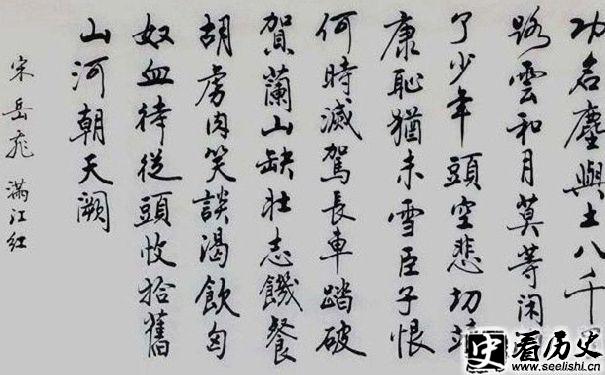 功名塵與土八千里
路雲和月莫等闲
了少年頭空悲切靖
康恥猶未雪臣子恨
何時滅駕長車踏破
賀蘭山缺壯志饑餐
胡虜肉笑談渴飲匈
奴血待從頭收拾舊
山河朝天闕
宋岳飛 滿江红
史 看历史
www.seelishi.cn